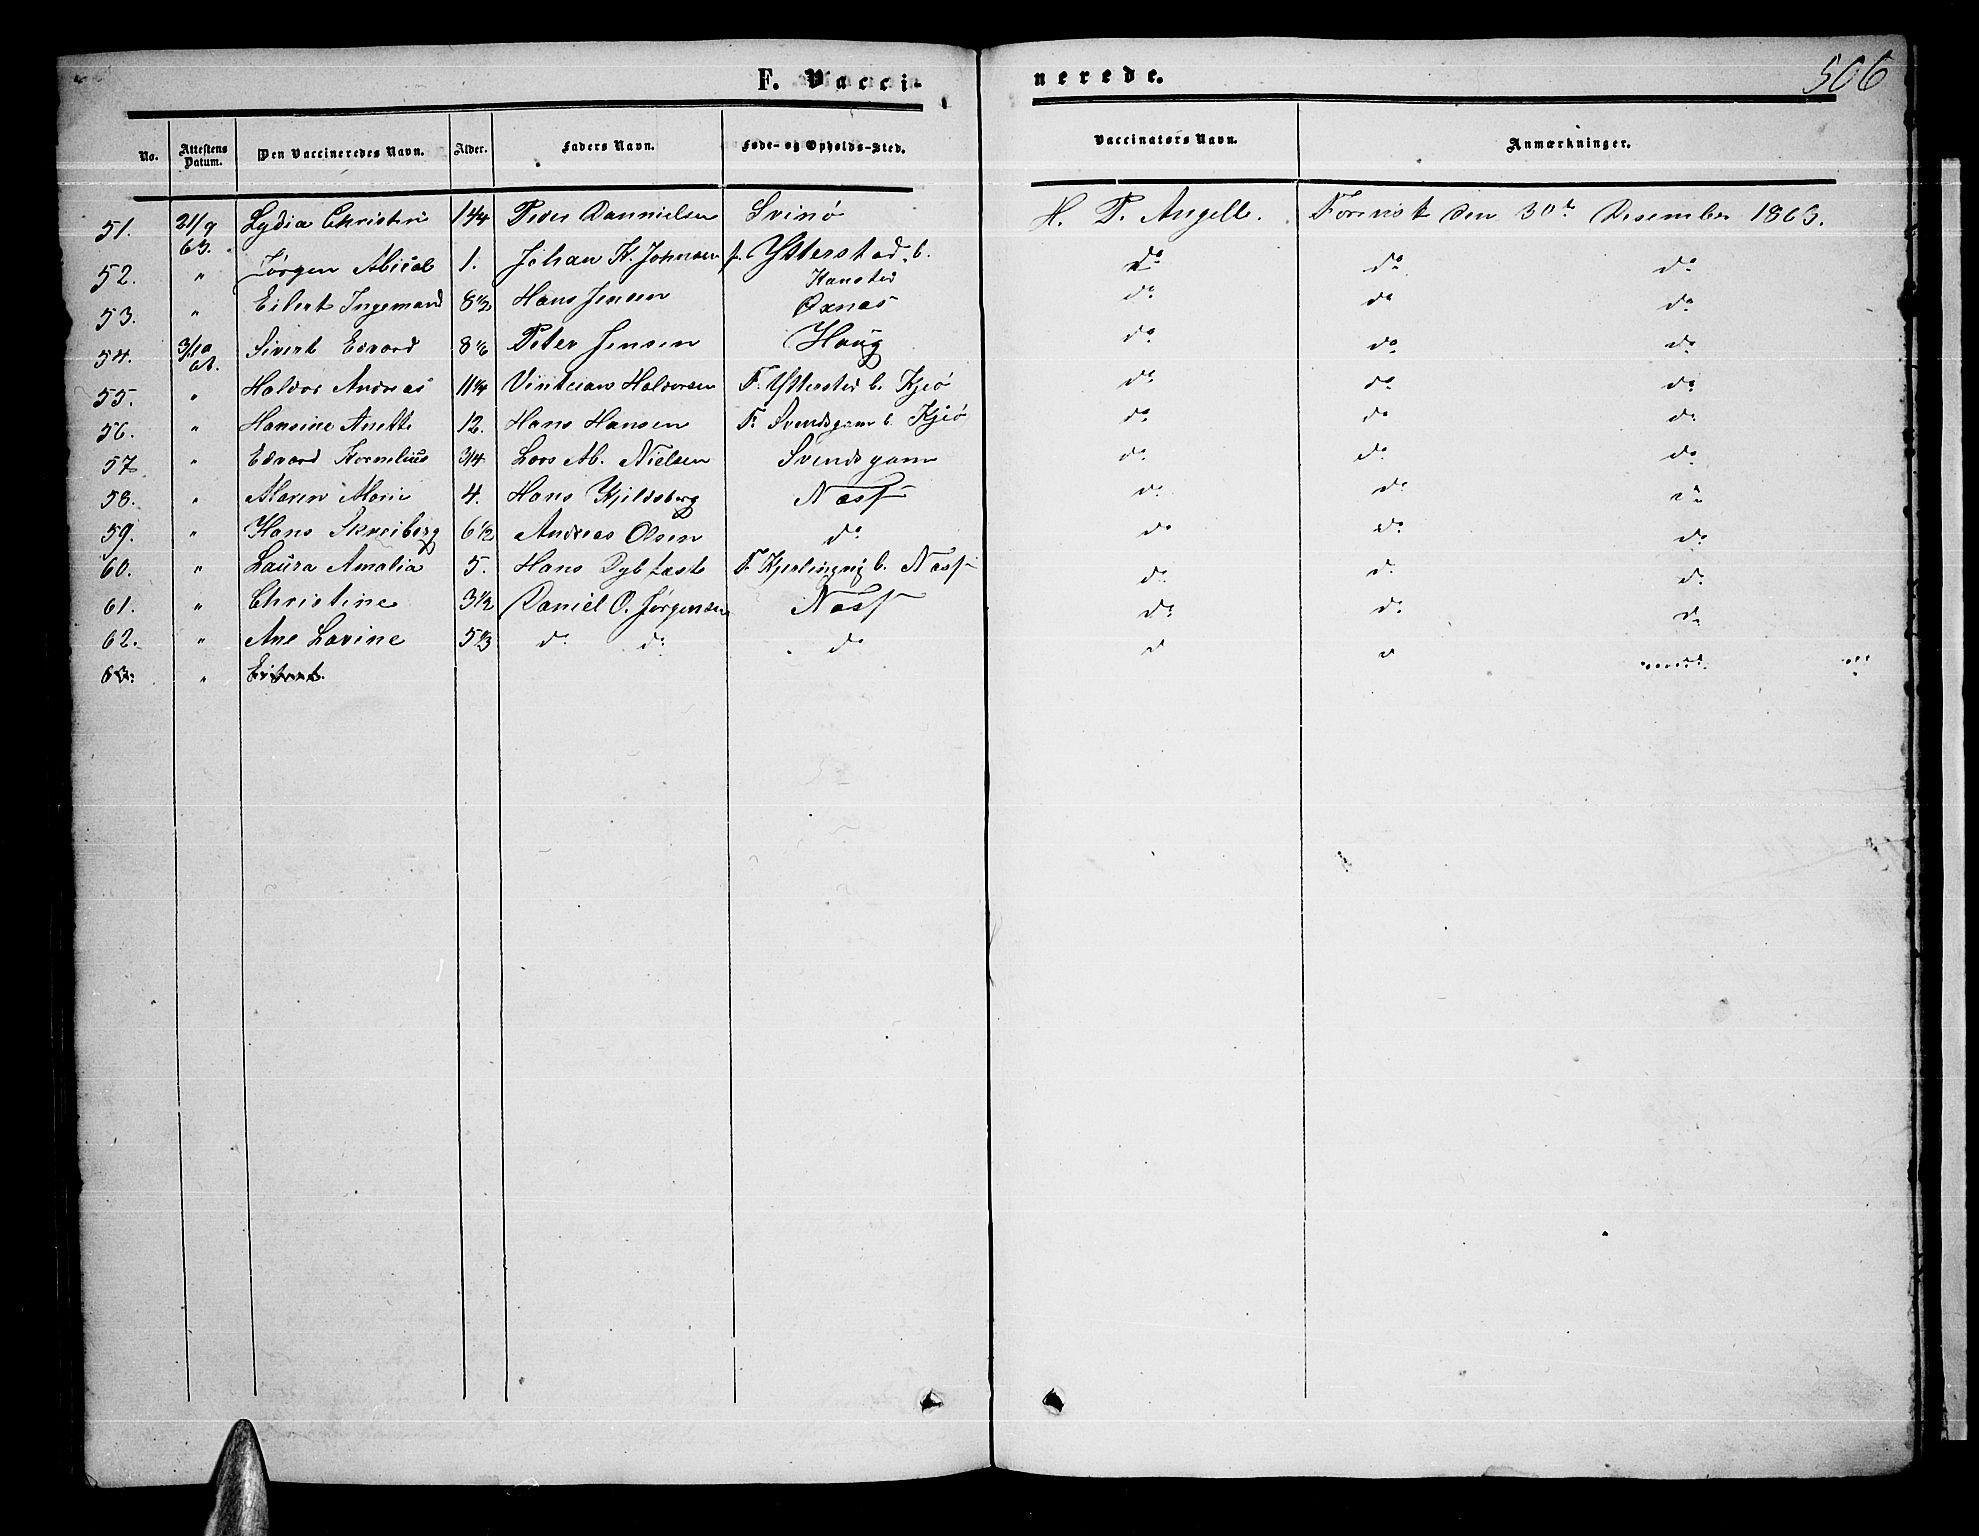 F. Vacci- nerede. 506
No. Attestens Datum. Den Vaccineredes Navn. Alder. Faders Navn. Føde- og Opholds-Sted. Vaccinators Navn. Anmærkninger.
51. 21/9 63. Lydia Christin 1 1/4 Peder Dannielsen Svinø H. P. Angell. Den 30te Desember 1863.
52. " Jørgen Abicol 1. Johan K. Johnsen f. Ytterstad. b. Kansted do do do
53. " Eilert Ingemard 8 1/2 Hans Jensen Oxnæs do do do
54. 3/10 Sivert Edvard 8 1/6 Peter Jensen Haug do do do
55. " Haldor Andreas 11 1/4 Haldorsen F. Ytterstad b. Kjeø do do do
56. " Hansine Anette 12. Hans Hansen F. Svendsgam b. Kjeø do do do
57 " Edvard Kornelius 3/4 Lars Ab. Nielsen Svendsgam do do do
58. " Maren Marie 4. Hans Kjildsberg Næss do do do
59. " Hans Skreiberg 6 1/2 Andreas Olsen do do do do
60. " Laura Amalia 5. Hans Dybfæst F. Kjerlingvig b. Næss do do do
61. " Christine 3 1/2 Daniel O. Jørgensen Næss do do do
62. " Ane Lovine 5 1/3 do do do d d
63. "